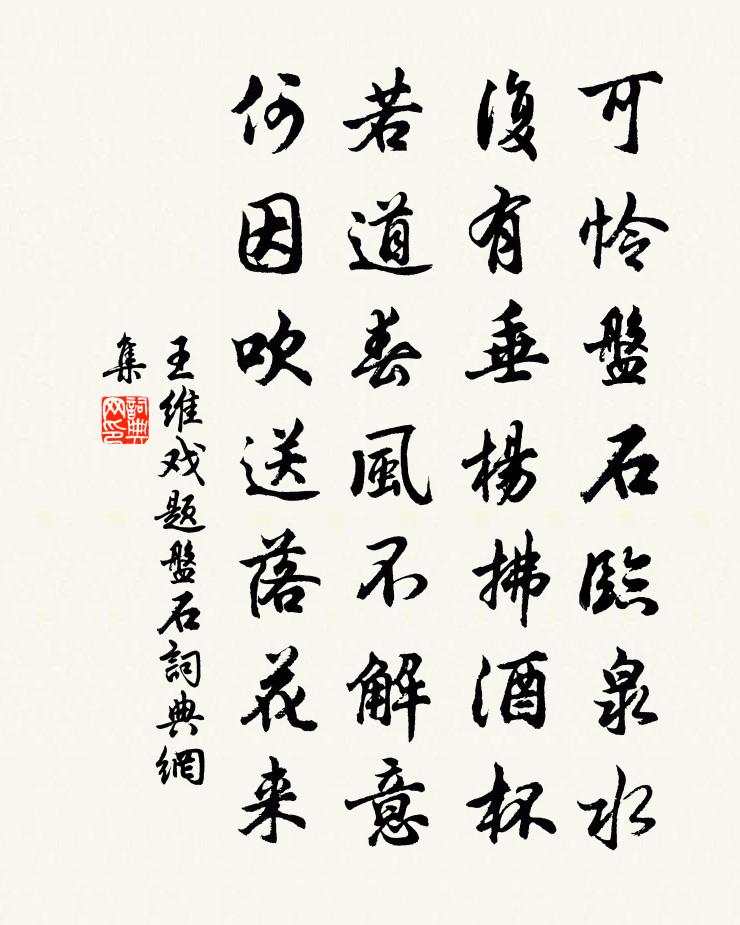 可怜盤石臨泉水
復有垂楊拂酒杯
若道春風不解意
何因吹送落花来
王維戏题盤石詞典網
集
詞典
网印